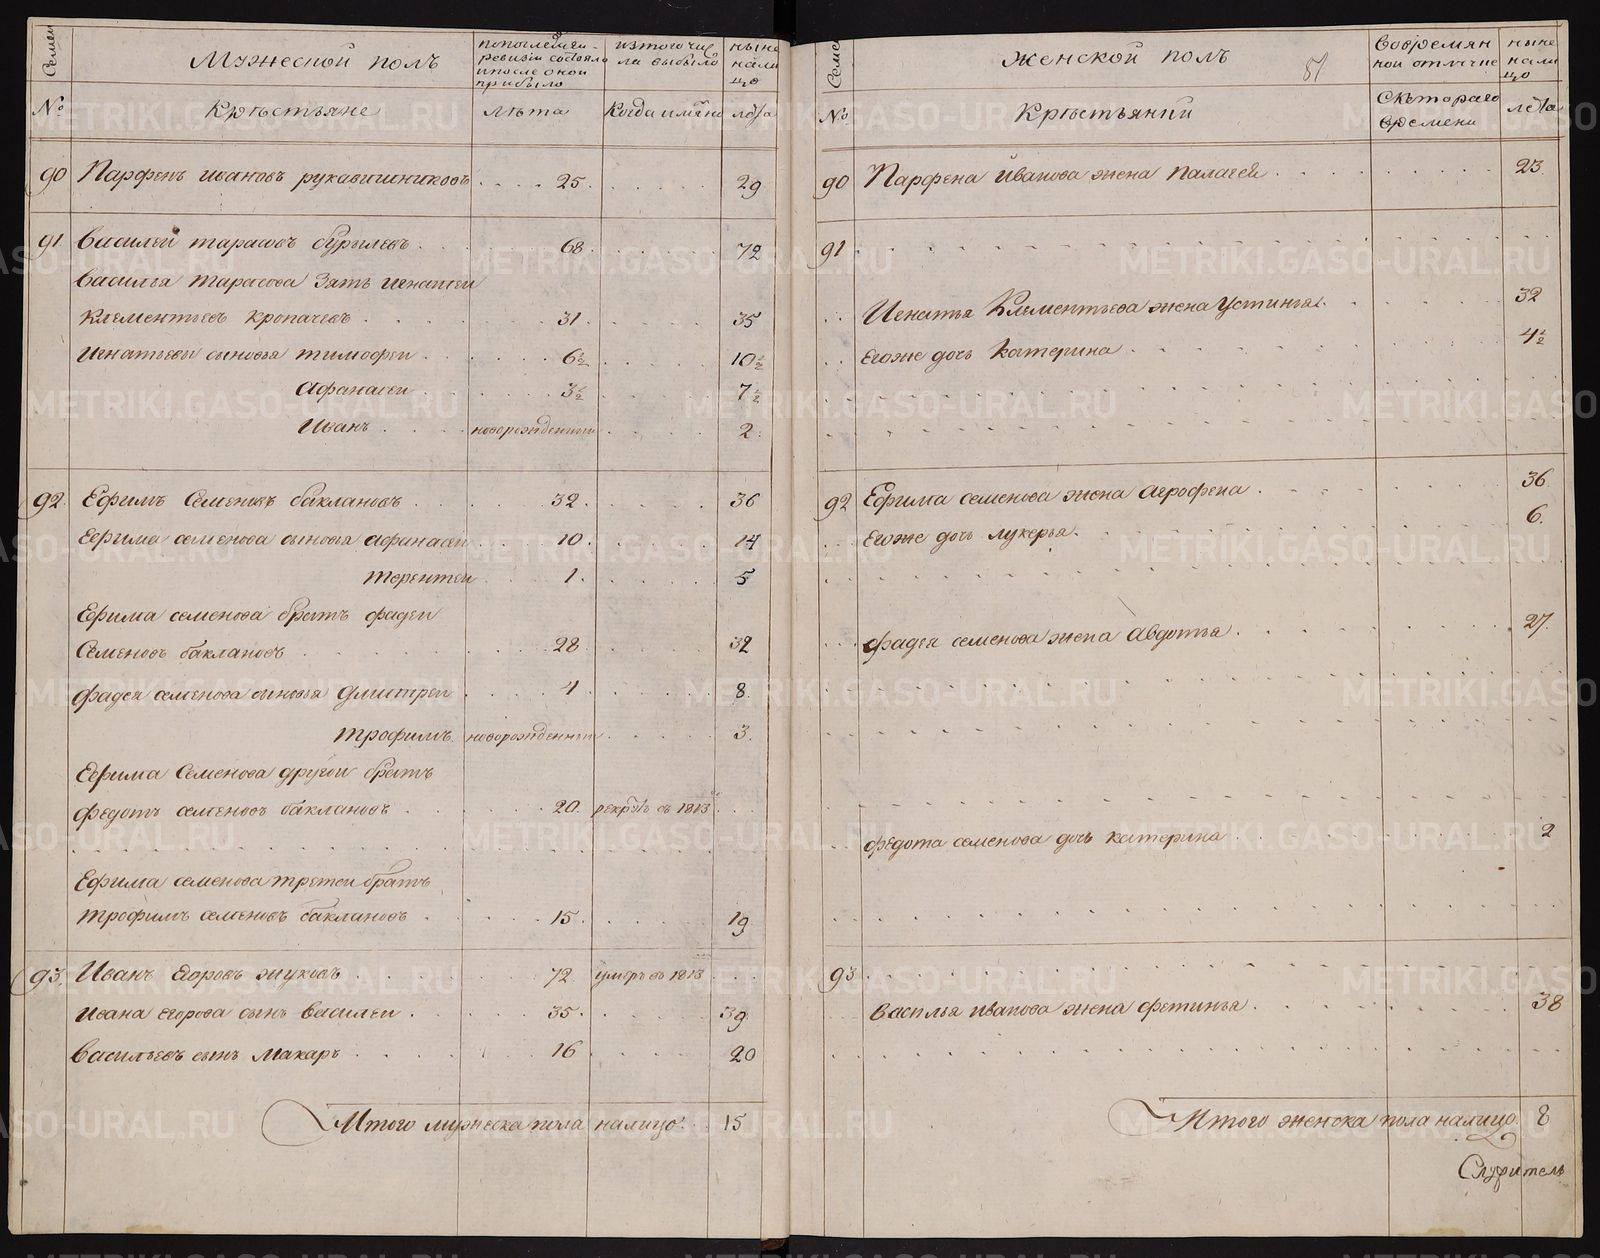 Семеи
Мужеской полъ
попоследнеи ревизіи состояло ипосле онои прибыло
изтого числа выбыло
ныне налицо
№.
Крѣстьяне
лѣта
Когда имянно
лѣта
90 Парфенъ ивановъ рукавишниковъ 25. 29
91 Василей тарасовъ бурылевъ 68. 72
Василья тарасова зять игнатеи
клементьевъ кропачевъ 31. 35
игнатьевы сыновья тимофеи 6½ 10½
Афанасеи 3½ 7½
Иванъ новорожденныи 2.
92. Ефимъ Семеновъ баклановъ 32. 36
Ефима семенова сыновья афанасеи 10. 14
терентеи 1. 5
Ефима семенова братъ фадеи
Семеновъ баклановъ 28 32
фадея семенова сыновья дмитреи 4 8.
трофимъ новорожденныи 3.
Ефима Семенова другои братъ
федотъ семеновъ баклановъ 20. рекрутъ въ 1813
Ефима семенова третеи братъ
трофимъ семеновъ баклановъ 15. 19
93. Иванъ Егоровъ жуковъ 72. умеръ въ 1813
ивана егорова сынъ василеи 35. 39
васильевъ сынъ макаръ 16 20
Итого мужеска пола налицо. 15
Семеи
женской полъ
51
Вовремянной отлучке
ныне налицо
№.
Крѣстьянки
Скѣтораго времени
лѣта
90 Парфена иванова жена палагея 23.
91
Игнатья Клементьева жена устинья. 32
егоже дочь катерина 4½
92 Ефима семенова жена агрофена 36
Егоже дочь лукерья. 6.
фадея семенова жена авдотья 27.
федота семенова дочь катерина 2
93
василья иванова жена фетинья 38
Итого женска пола налицо. 8
Служитель